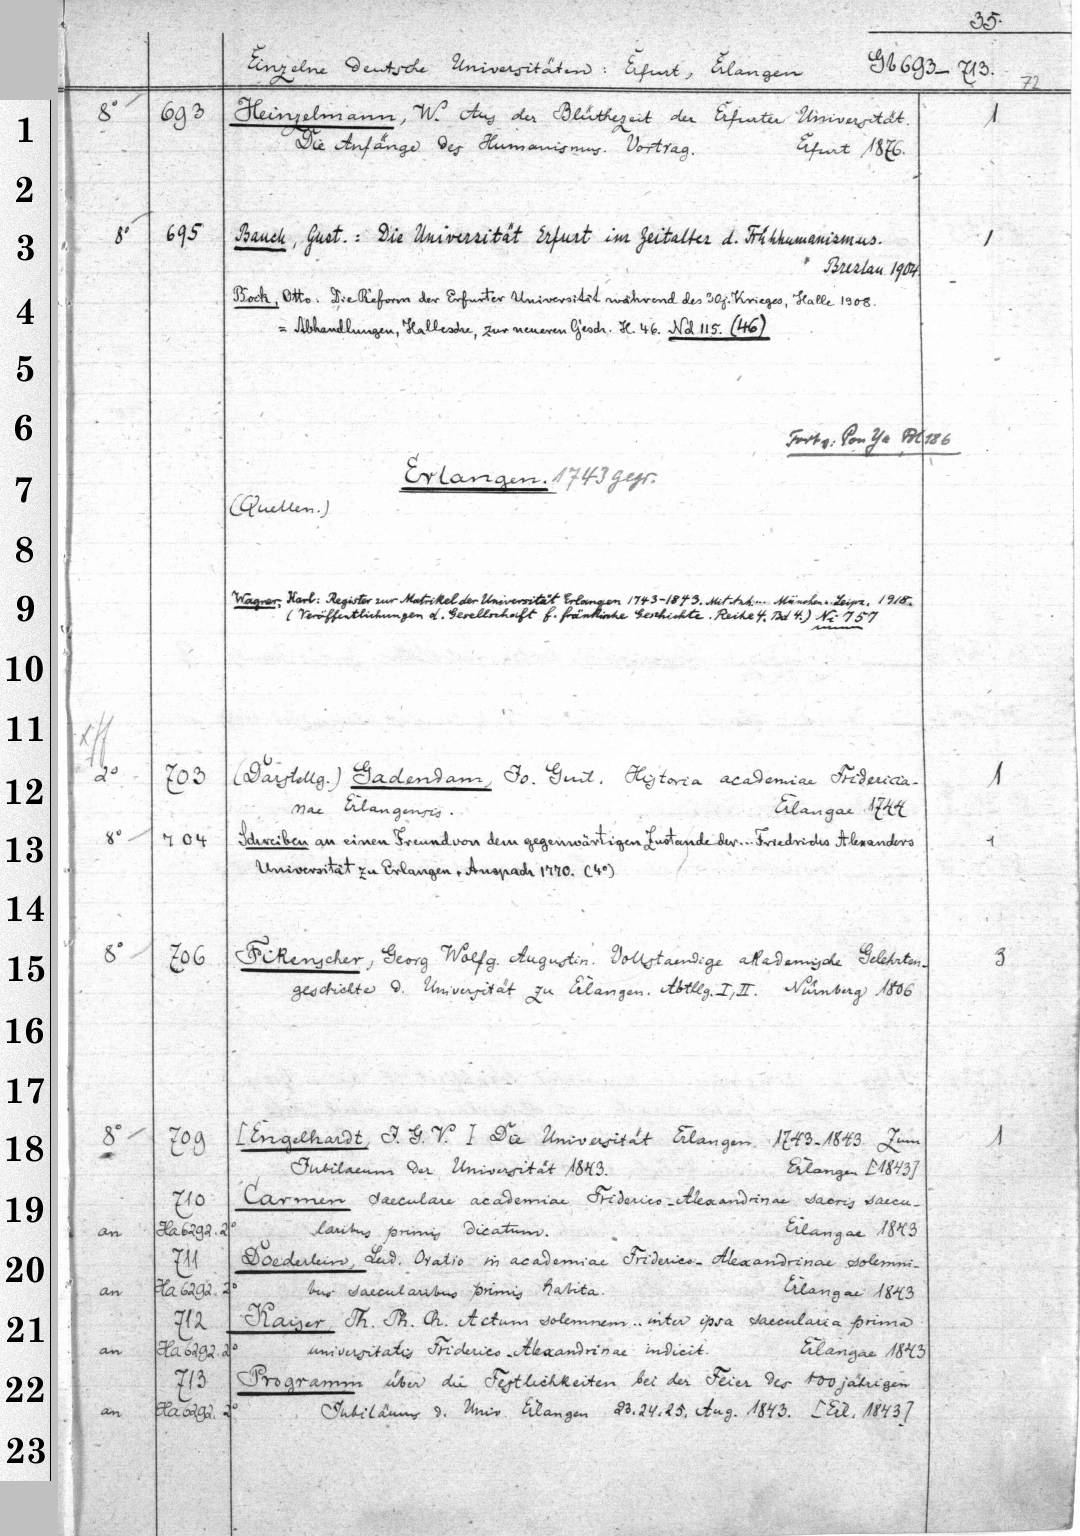 35.
Einzelne Deutsche Universitäten: Erfurt, Erlangen Gb 693–713.
72
1 8° 693 Heinzelmann, W. Aus der Blüthezeit der Erfurter Universität. 1
Die Anfänge des Humanismus. Vortrag. Erfurt 1876.
2
3 8° 695 Bauch, Gust.: Die Universität Erfurt im Zeitalter d. Frühhumanismus. 1
Breslau 1904.
4 Bock, Otto: Die Reform der Erfurter Universität während des 30j. Krieges, Halle 1908.
= Abhandlungen, Hallesche, zur neueren Gesch. H. 46. Nd 115. (46)
5
6
Fortg: Pon Ya 186
7 Erlangen. 1743 gegr.
(Quellen.)
8
9 Wagner, Karl: Register zur Matrikel der Universität Erlangen 1743–1843. Mit Anh... München u. Leipz. 1918.
(Veröffentlichungen d. Gesellschaft f. fränkische Geschichte. Reihe 4. Bd 4.) Ni 757
10
11
12 2° 703 (Darstellg.) Gadendam, Jo. Guil. Historia academiae Fridericia- 1
nae Erlangensis. Erlangae 1744
13 8° 704 Schreiben an einen Freund von dem gegenwärtigen Zustande der... Friedrichs Alexanders 1
Universität zu Erlangen. Anspach 1770. (4°)
14
15 8° 706 Fikenscher, Georg Wolfg. Augustin. Vollstaendige akademische Gelehrten- 3
geschichte d. Universität zu Erlangen. Abtllg. I, II. Nürnberg 1806
16
17
18 8° 709 [Engelhardt, J. G. V.] Die Universität Erlangen 1743–1843. Zum 1
Jubilaeum der Universität 1843. Erlangen [1843]
19 710 Carmen saeculare academiae Friderico-Alexandrinae sacris saecu-
an Ha 6292. 2° laribus primis dicatum. Erlangae 1843
20 711 Doederlein, Lud. Oratio in academiae Friderico-Alexandrinae solemni-
an Ha 6292. 2° bus saecularibus primis habita. Erlangae 1843
21 712 Kaiser, Th. Ph. Ch. Actum solemnem.. inter ipsa saecularia prima
an Ha 6292. 2° universitatis Friderico-Alexandrinae indicit. Erlangae 1843
22 713 Programm über die Festlichkeiten bei der Feier des 100jährigen
an Ha 6292. 2° Jubiläums d. Univ. Erlangen 23.24.25. Aug. 1843. [Erl. 1843]
23